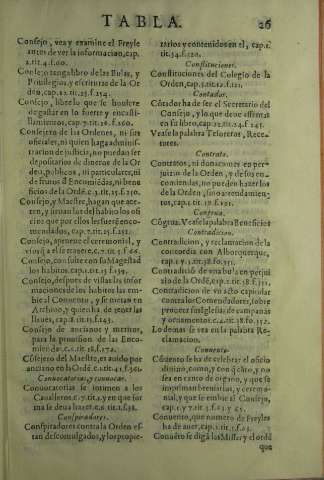 TABLA.
26
Consejo, vea y examine el Freyle
antes de ver la informacion, cap.
2. tit. 4. f. 60.
Consejo tenga libro de las Bulas, y
Priuilegios, y escrituras de la Or
den, cap. 12. tit. 25. f. 254.
Consejo, libre lo que se houiere
de gastar en lo fuerte y encasti-
llamientos, cap. tit. f. 260.
Consejero de las Ordenes, ni sus
oficiales, ni quien haga adminis-
tracion de justicia, no puedan ser
depositarios de dineros de la Or
den, publicos, ni particulares, ni
de frutos de Encomiendas, ni bene
ficios de la Ordē. c. tit. 25. f. 250.
Consejo, y Maestre, hagan que ac-
ten, y siruan los del habito los ofi
cios que por ellos fueren enco-
mendados, cap. 7. tit. 25. f. 251.
Consejo, aprueue el ceremonial, y
Consejo, consulte con su Magestad
los habitos. cap. 1. tit. f.
Consejo, despues de vistas las infor
maciones de los habitos las em-
bie al Conuento, y se metan en
Archiuo, y quien ha de tener las
llaues, cap. 8. tit. f. 143.
Consejo de ancianos y meritos,
para la prouision de las Enco-
miendas. c. tit. 38. f. 172.
Cōsejero del Maestre, es auido por
anciano en la Ordē. c. tit. 41. f. 301.
Convocatorias, y conuocar.
Conuocatorias se intimen a los
Caualleros. c. 7. tit. 1. y en que for
ma se deua hazer. c. 6. tit. 1. f. 38.
Conspiradores.
Conspiradores contra la Orden es-
tan descomulgados, y los propie-
tarios y contenidos en el, cap. 1.
tit. 34. f. 120.
Constituciones.
Constituciones del Colegio de la
Orden, cap. 5. tit. 12. f. 121.
Contador.
Cōtador ha de ser el Secretario del
Consejo, y lo que deue assentar
en su libro, cap. 12. tit. 24. f. 245.
Vease la palabra Tesoreros, Rece-
tores.
Contrato.
Contratos, ni donaciones en per-
juizio de la Orden, y de sus en-
comiendas, no pueden hazer los
de la Orden, sino arrendamien-
tos, cap. 1. tit. 12. f. 191.
Congrua.
Cōgrua. Vease la palabra Beneficios
Contradicion.
Contradicion, y reclamacion de la
concordia con Alburquerque,
cap. 19. tit. 38. f. 351.
Contradiciō de vna bula en perjui
zio de la Ordē, cap. 1. tit. 38. f. 351.
Contradicion de vn acto capitular
contra los Comendadores, sobre
proueer sus Iglesias de campanas
y ornamentos. c. 4. tit. 38. fo. 352.
Lo demas se vea en la palabra Re-
clamacion.
Conuento.
Cōuento se ha de celebrar el oficio
diuino, como, y con q̄ choro, y no
sea en canto de organo, y que se
impriman breuiarios, y ceremo-
nial, y que se embie al Consejo,
cap. 1. y 7. tit. 3. f. 23. y 65.
Conuento, que numero de Freyles
ha de auer, cap. 1. tit. 3. f. 23.
Conuēto se digā las Missas y donde
que